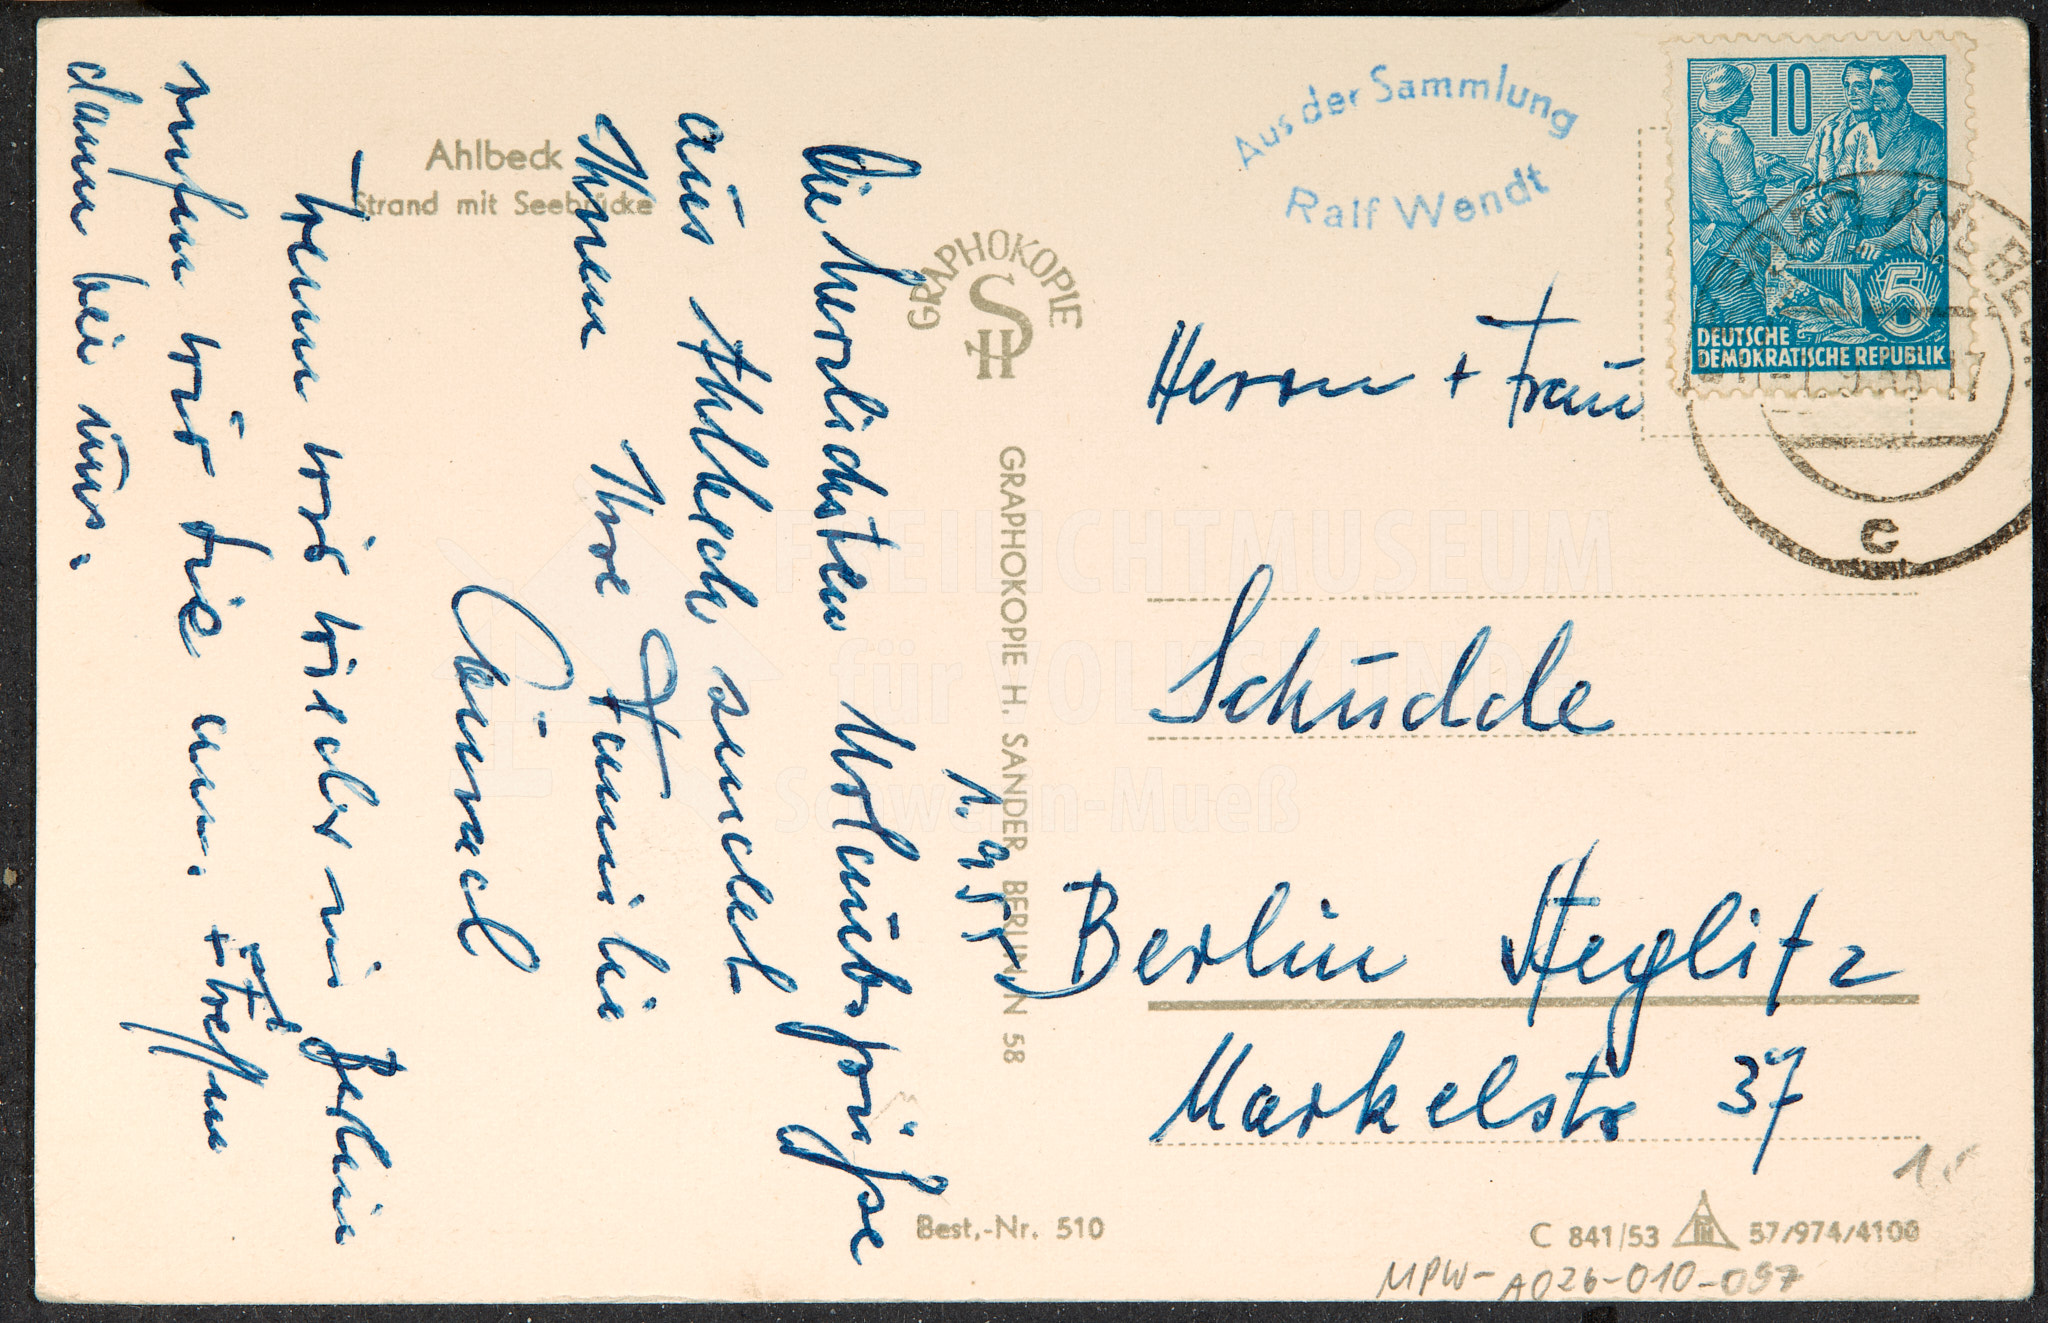 Ahlbeck
Strand mit Seebrücke
GRAPHOKOPIE
SH
GRAPHOKOPIE H. SANDER BERLIN N 58
Aus der Sammlung
Ralf Wendt
10
5
DEUTSCHE
DEMOKRATISCHE REPUBLIK
c
1.9.55.
Die herzlichsten Urlaubsgrüße
aus Ahlbeck sendet
Ihnen Ihre Familie
Wenn wir wieder in Berlin
rufen wir Sie an. Treffen
dann bei uns.
Herrn + Frau
Schudde
Berlin Steglitz
Markelstr 37
Best.-Nr. 510
C 841/53 57/974/4100
MPW-A026-010-097
FREILICHTMUSEUM
für VOLKSKUNDE
Schwerin-Mueß